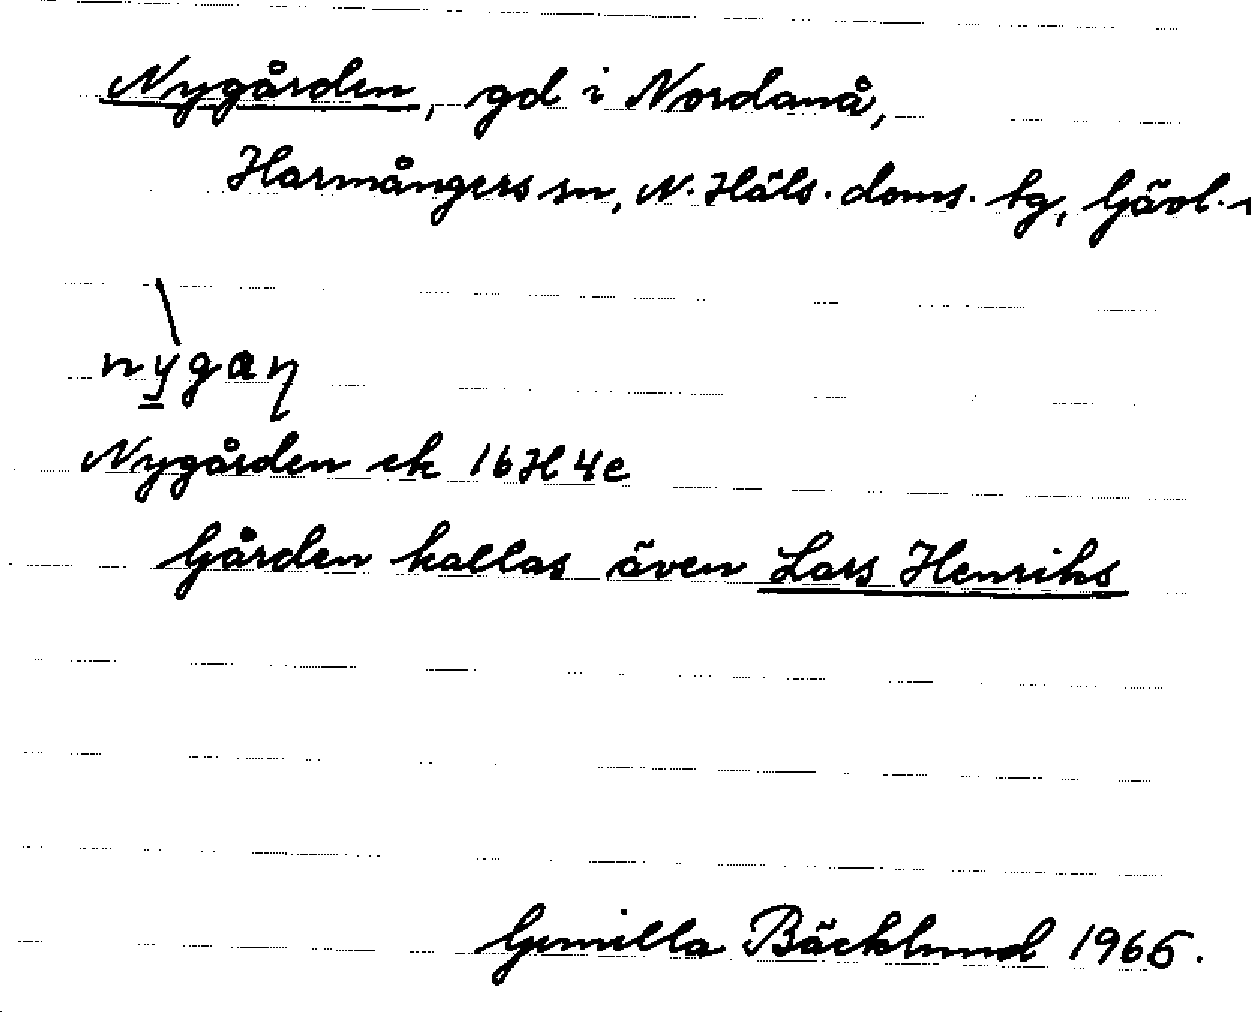 Nygården, gd i Nordanå,
Harmångers sn, N. Häls. doms. tg, Gävl.
nỳgaɳ
Nygården ek 16H4c
Gården kallas även Lars Henriks
Gunilla Bäcklund 1966.